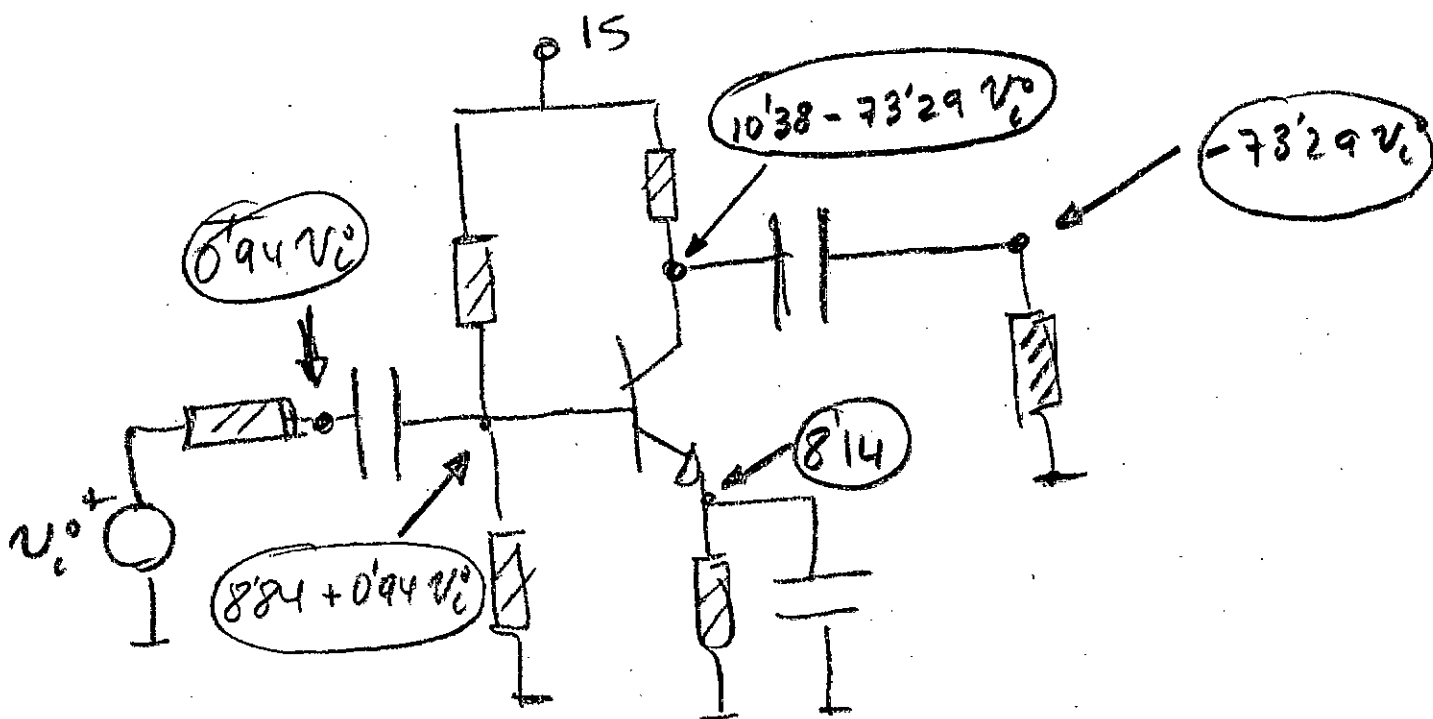 15
10'38 - 73'29 vi
-73'29 vi
0'94 vi
8'14
vi +
8'84 + 0'94 vi